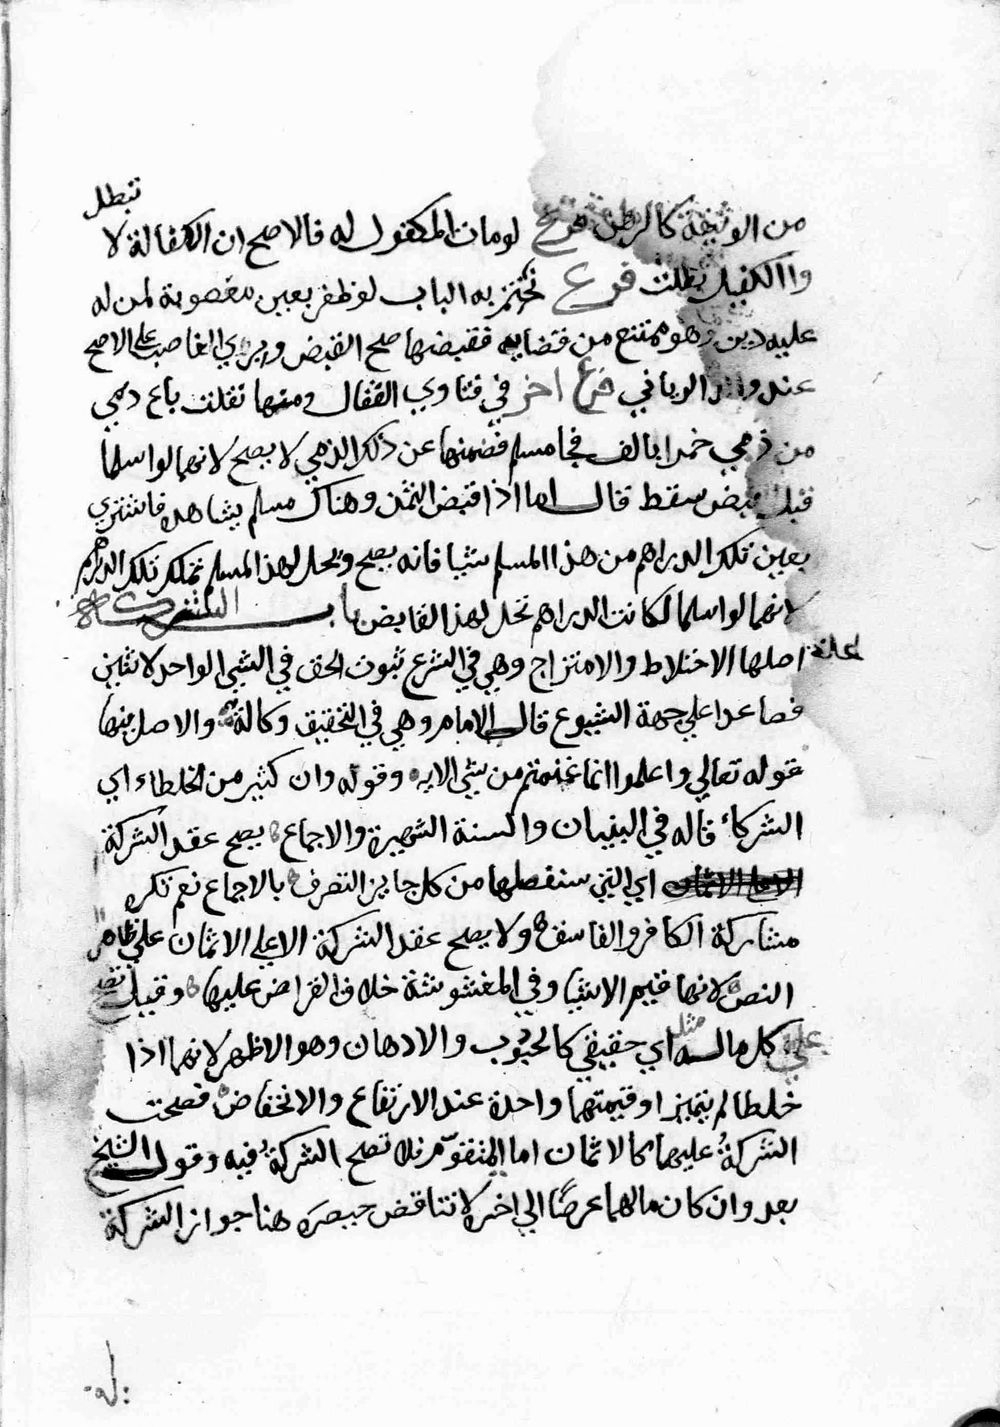 تبطل
من الوثيقة كالرهن فرع لو مات المكفول له فالاصح ان الكفالة لا
واالكفيل بطلت فرع نختتم به الباب لو ظفر بعين مغصوبة لمن له
عليه دين وهو ممتنع من قضايه فقبضها صح القبض وبري الغاصب على الاصح
عند الروياني فرع اخر في فتاوي القفال ومنها نقلت باع ذمي
من ذمي خمرا بالف فجا مسلم فضمنها عن ذلك الذمي لا يصح لانهما لو اسلما
قبل قبض سقط قال اما اذا قبض الثمن وهناك مسلم يشاهده فاشتري
بعين تلك الدراهم من هذا المسلم شيا فانه يصح ويحل لهذا المسلم تملك تلك الدراهم
لانهما لو اسلما لكانت الدراهم تحل لهذا القابض باب الشركة
لغة اصلها الاختلاط والامتزاج وهي في الشرع ثبوت الحق في الشي الواحد لاثنين
فصاعدا علي جهة الشيوع قال الامام وهي في التحقيق وكالة والاصل فيها
قوله تعالي واعلموا انما غنمتم من شي الايه وقوله وان كثير من الخلطاء اي
الشركاء قاله في البيان والسنة الشهيرة والاجماع يصح عقد الشركة
اي التي سنفصلها من كل جايز التصرف بالاجماع نعم تكره
مشاركة الكافر والفاسق ولا يصح عقد الشركة الا علي الاثمان علي ظاهر
النص لانها قيم الاشيا وفي المغشوشة خلاف القراض عليها وقيل تصح
علي كل ماله مثل اي حقيقي كالحبوب والادهان وهو الاظهر لانهما اذا
خلطا لم يتميز او قيمتهما واحدة عند الارتفاع والانخفاض فصحت
الشركة عليهما كالاثمان اما المتقوم فلا تصح الشركة فيه وقول الشيخ
بعد وان كان مالهما عرضا الي اخره لا تناقض حصره هنا جواز الشركة
له